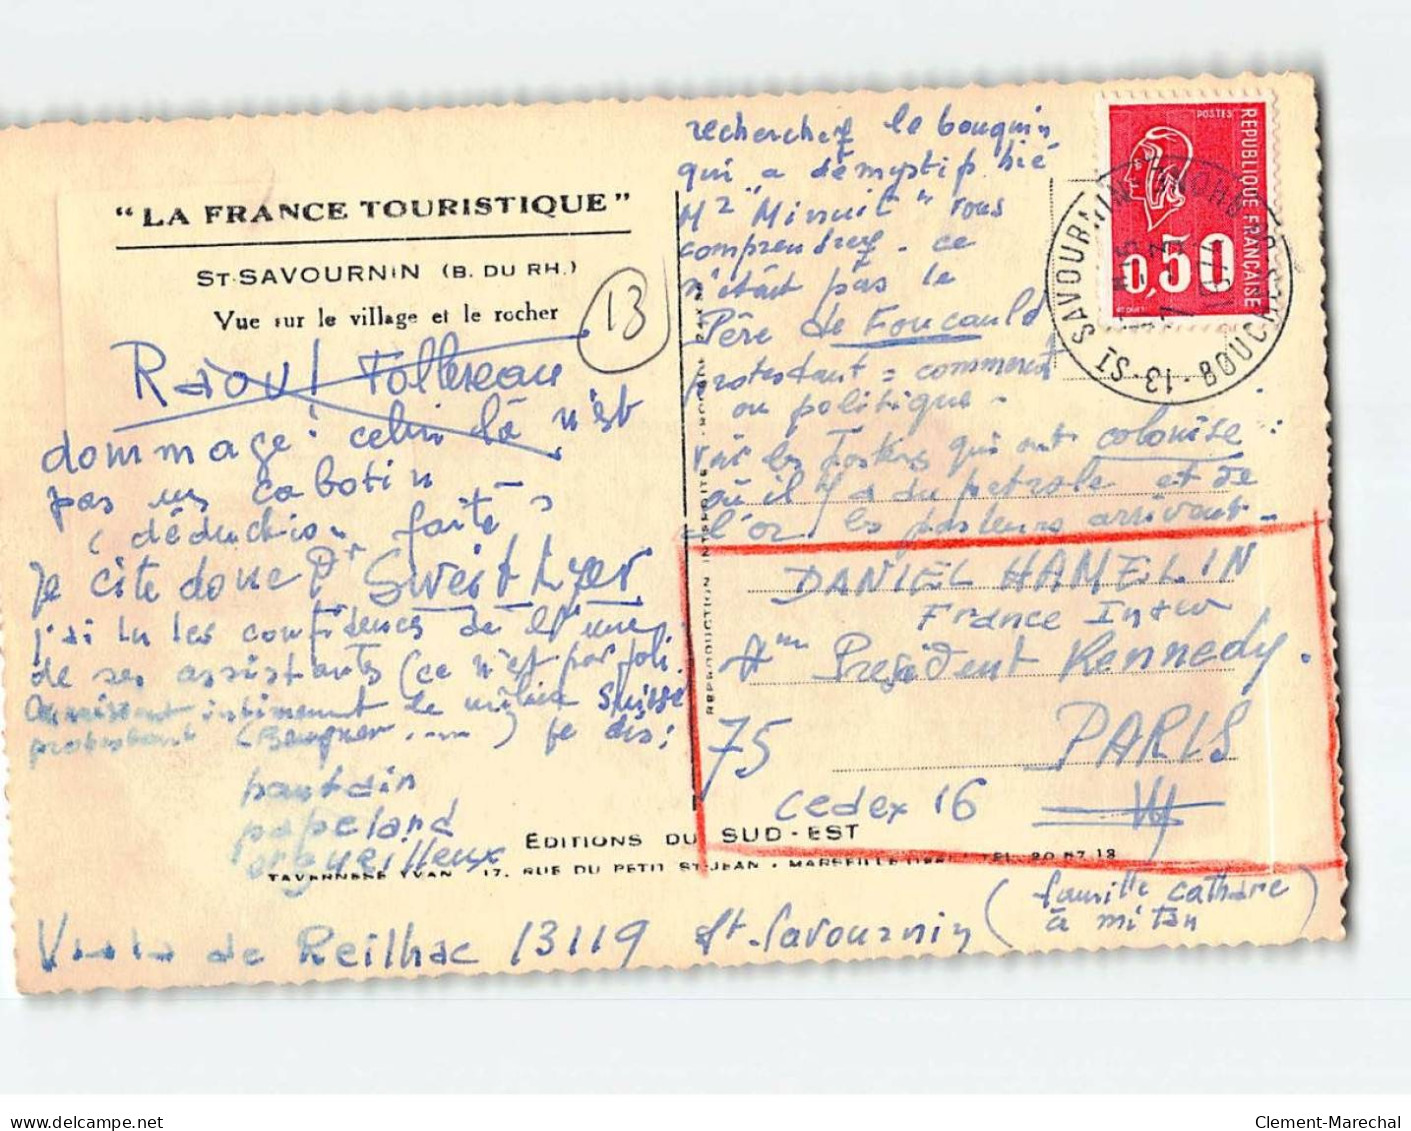 "LA FRANCE TOURISTIQUE"
ST-SAVOURNIN (B. DU RH.)
Vue sur le village et le rocher
13
Raoul Follereau
dommage! celui là n'est
pas un cabotin
(déduction faite)
Je cite donc Dr
j'ai lu les confidences de l'une
de ses assistants (ce n'est pas joli.
connaissant intimement le milieu suisse
protestant ( .....) je dis:
pantin
papelard
orgueilleux
recherchez le bouquin
qui a démystifié
Mr "Minuit" vous
comprendrez. ce
n'était pas le
Père de Foucauld
protestant = commerce
ou politique.
voir les qui ont colonisé :
où il y a du pétrole et de
l'or, les pasteurs arrivent.
REPUBLIQUE FRANCAISE
POSTES
0,50
13 - ST SAVOURNIN
BOUCHES DU RHONE
REPRODUCTION INTERDITE
DANIEL HAMELIN
France Inter
Président Kennedy.
75 PARIS
Cedex 16
EDITIONS DU SUD-EST
TAVERNESE YVAN - 17, RUE DU PETIT ST-JEAN - MARSEILLE (1ER) TEL. 20.67.18
de Reilhac 13119 St-Savournin (famille cathare
à mi tan)
delcampe.net
Clement-Marechal